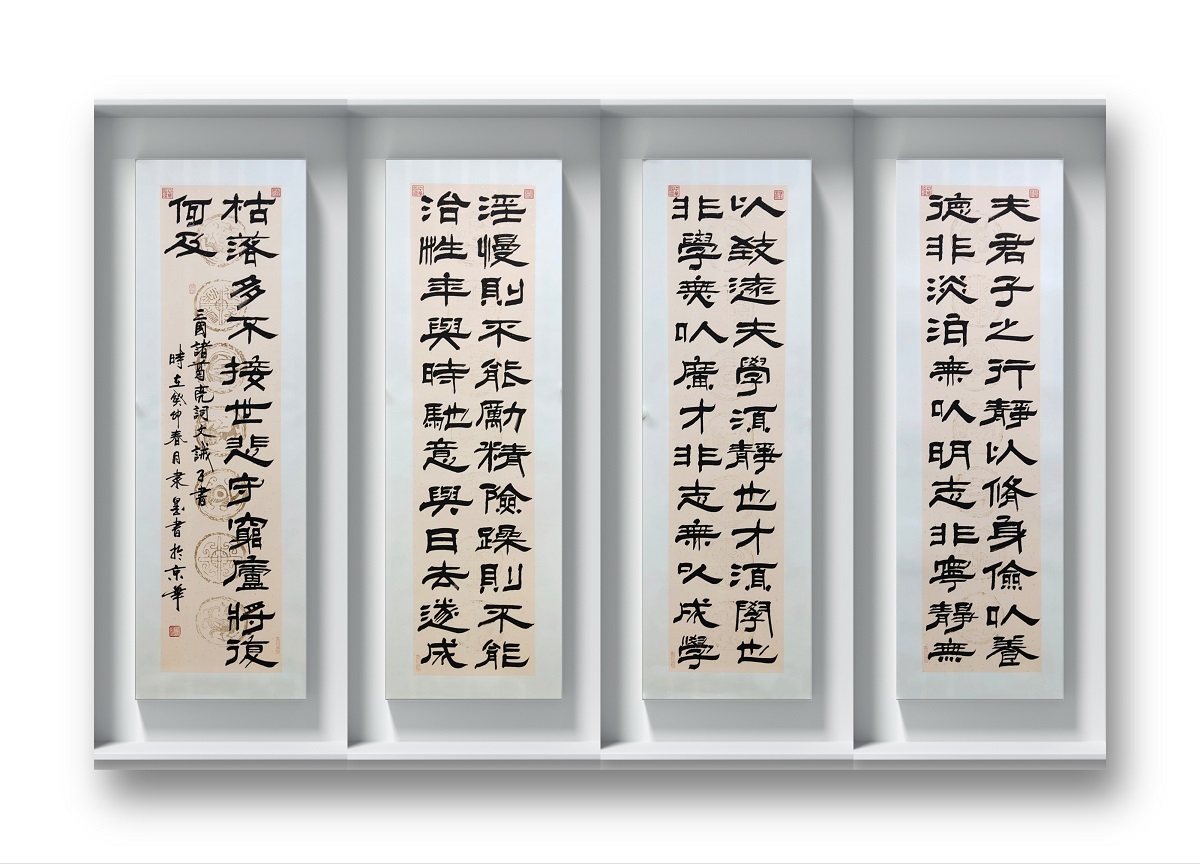 夫君子之行靜以脩身儉以養
德非淡泊無以明志非寧靜無
以致遠夫學須靜也才須學也
非學無以廣才非志無以成學
淫慢則不能勵精險躁則不能
治性年與時馳意與日去遂成
枯落多不接世悲守窮廬將復
何及
三國諸葛亮詞文誡子書
時在癸卯春月隶書於京華